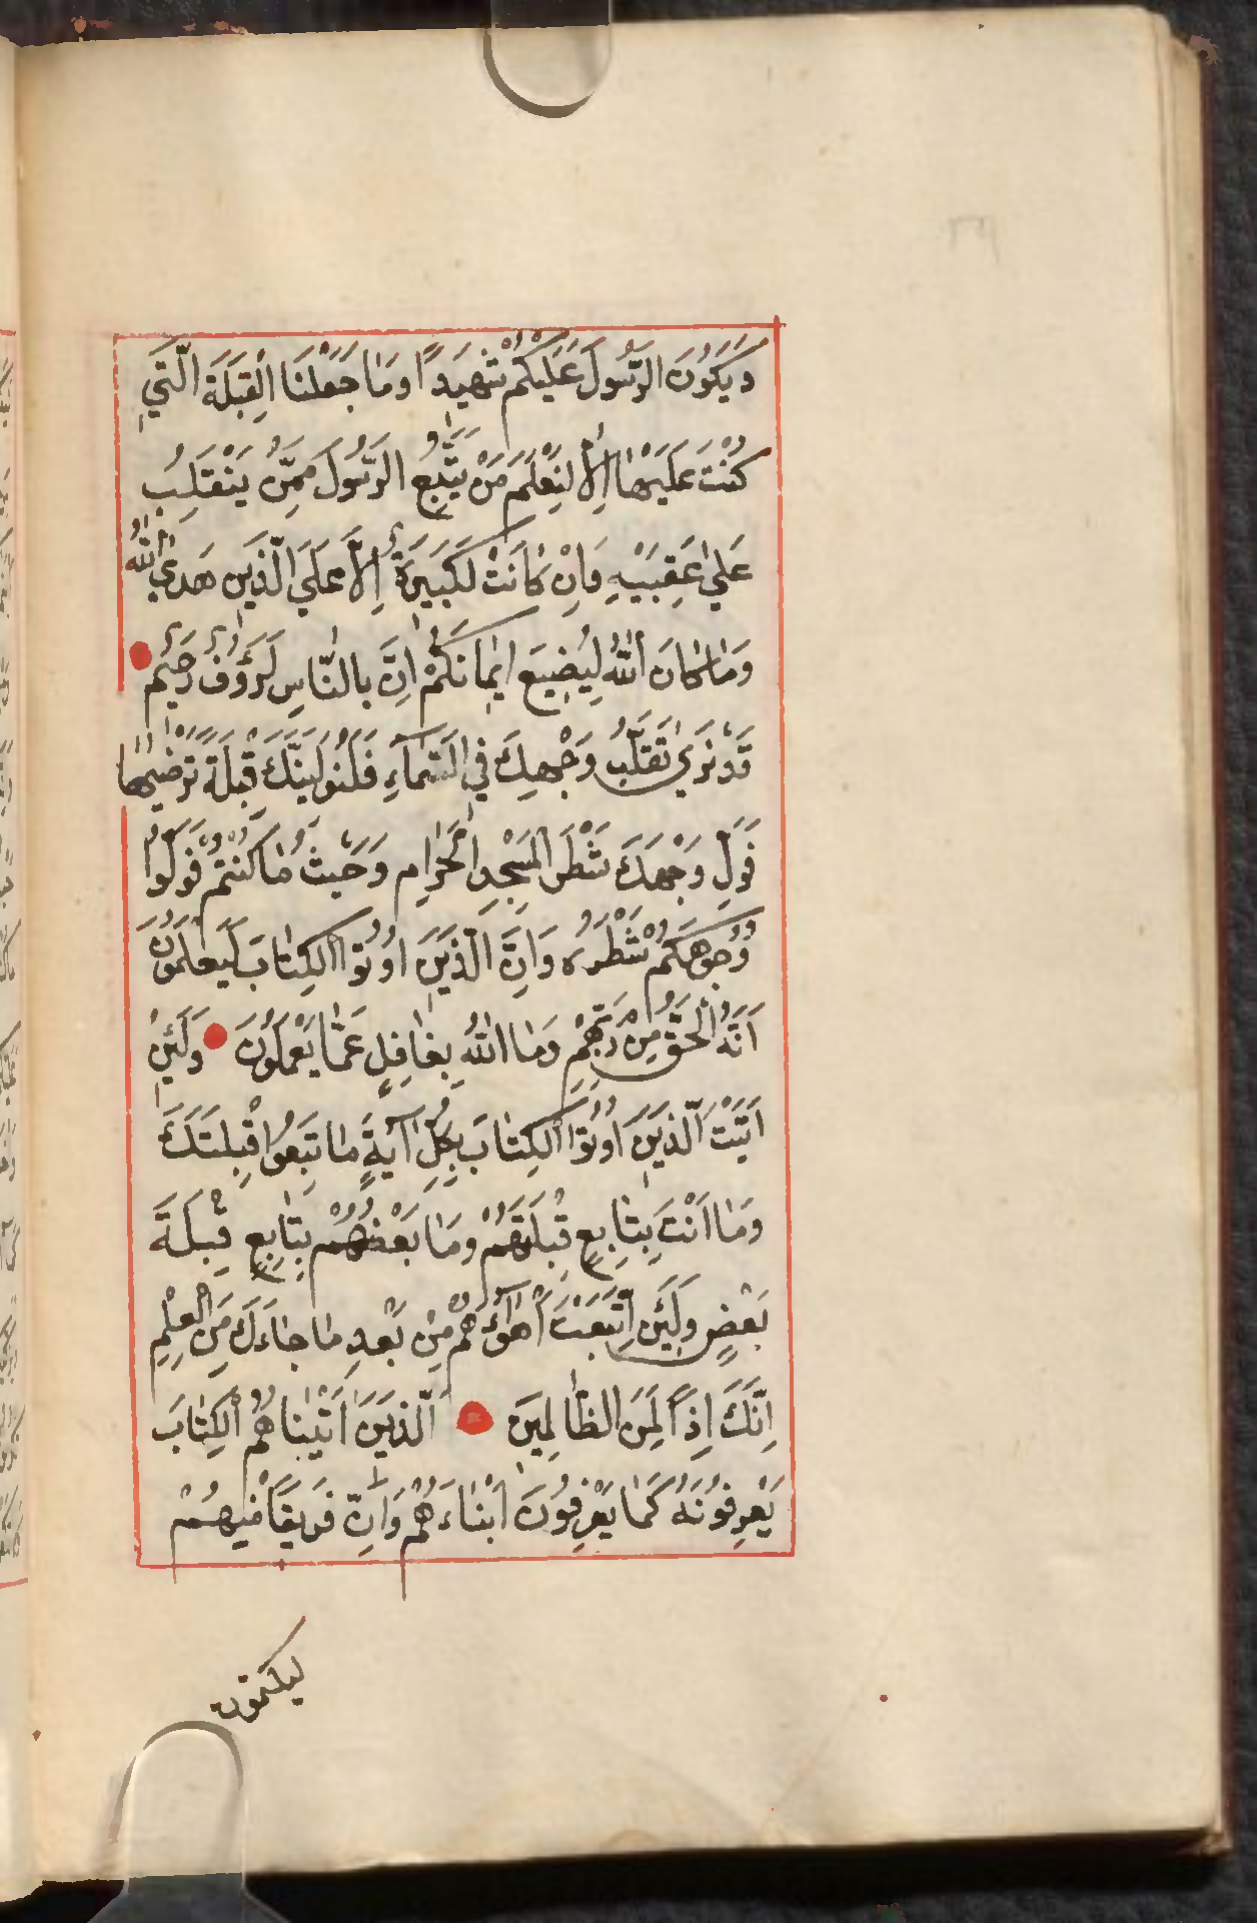 وَيَكُونَ الرَّسُولُ عَلَيْكُمْ شَهِيدًا وَمَا جَعَلْنَا الْقِبْلَةَ الَّتِي
كُنْتَ عَلَيْهَا اِلَّا لِنَعْلَمَ مَنْ يَتَّبِعُ الرَّسُولَ مِمَّنْ يَنْقَلِبُ
عَلٰي عَقِبَيْهِ وَاِنْ كَانَتْ لَكَبِيرَةً اِلَّا عَلَي الَّذِينَ هَدَي اللّٰهُ
وَمَا كَانَ اللّٰهُ لِيُضِيعَ اِيمَانَكُمْ اِنَّ بِالنَّاسِ لَرَؤُفٌ رَحِيمٌ
قَدْ نَرٰي تَقَلُّبَ وَجْهِكَ فِي السَّمَآءِ فَلَنُوَلِّيَنَّكَ قِبْلَةً تَرْضٰيهَا
فَوَلِّ وَجْهَكَ شَطْرَ الْمَسْجِدِ الْحَرَامِ وَحَيْثُ مَا كُنْتُمْ فَوَلُّوا
وُجُوهَكُمْ شَطْرَهُ وَاِنَّ الَّذِينَ اُوتُوا الْكِتَابَ لَيَعْلَمُونَ
اَنَّهُ الْحَقُّ مِنْ رَبِّهِمْ وَمَا اللّٰهُ بِغَافِلٍ عَمَّا يَعْمَلُونَ وَلَئِنْ
اَتَيْتَ الَّذِينَ اُوتُوا الْكِتَابَ بِكُلِّ اٰيَةٍ مَا تَبِعُوا قِبْلَتَكَ
وَمَا اَنْتَ بِتَابِعٍ قِبْلَتَهُمْ وَمَا بَعْضُهُمْ بِتَابِعٍ قِبْلَةَ
بَعْضٍ وَلَئِنِ اتَّبَعْتَ اَهْوَآءَهُمْ مِنْ بَعْدِ مَا جَاءَكَ مِنَ الْعِلْمِ
اِنَّكَ اِذًا لَمِنَ الظَّالِمِينَ اَلَّذِينَ اٰتَيْنَاهُمُ الْكِتَابَ
يَعْرِفُونَهُ كَمَا يَعْرِفُونَ اَبْنَاءَهُمْ وَاِنَّ فَرِيقًا مِنْهُمْ
ليكتمون